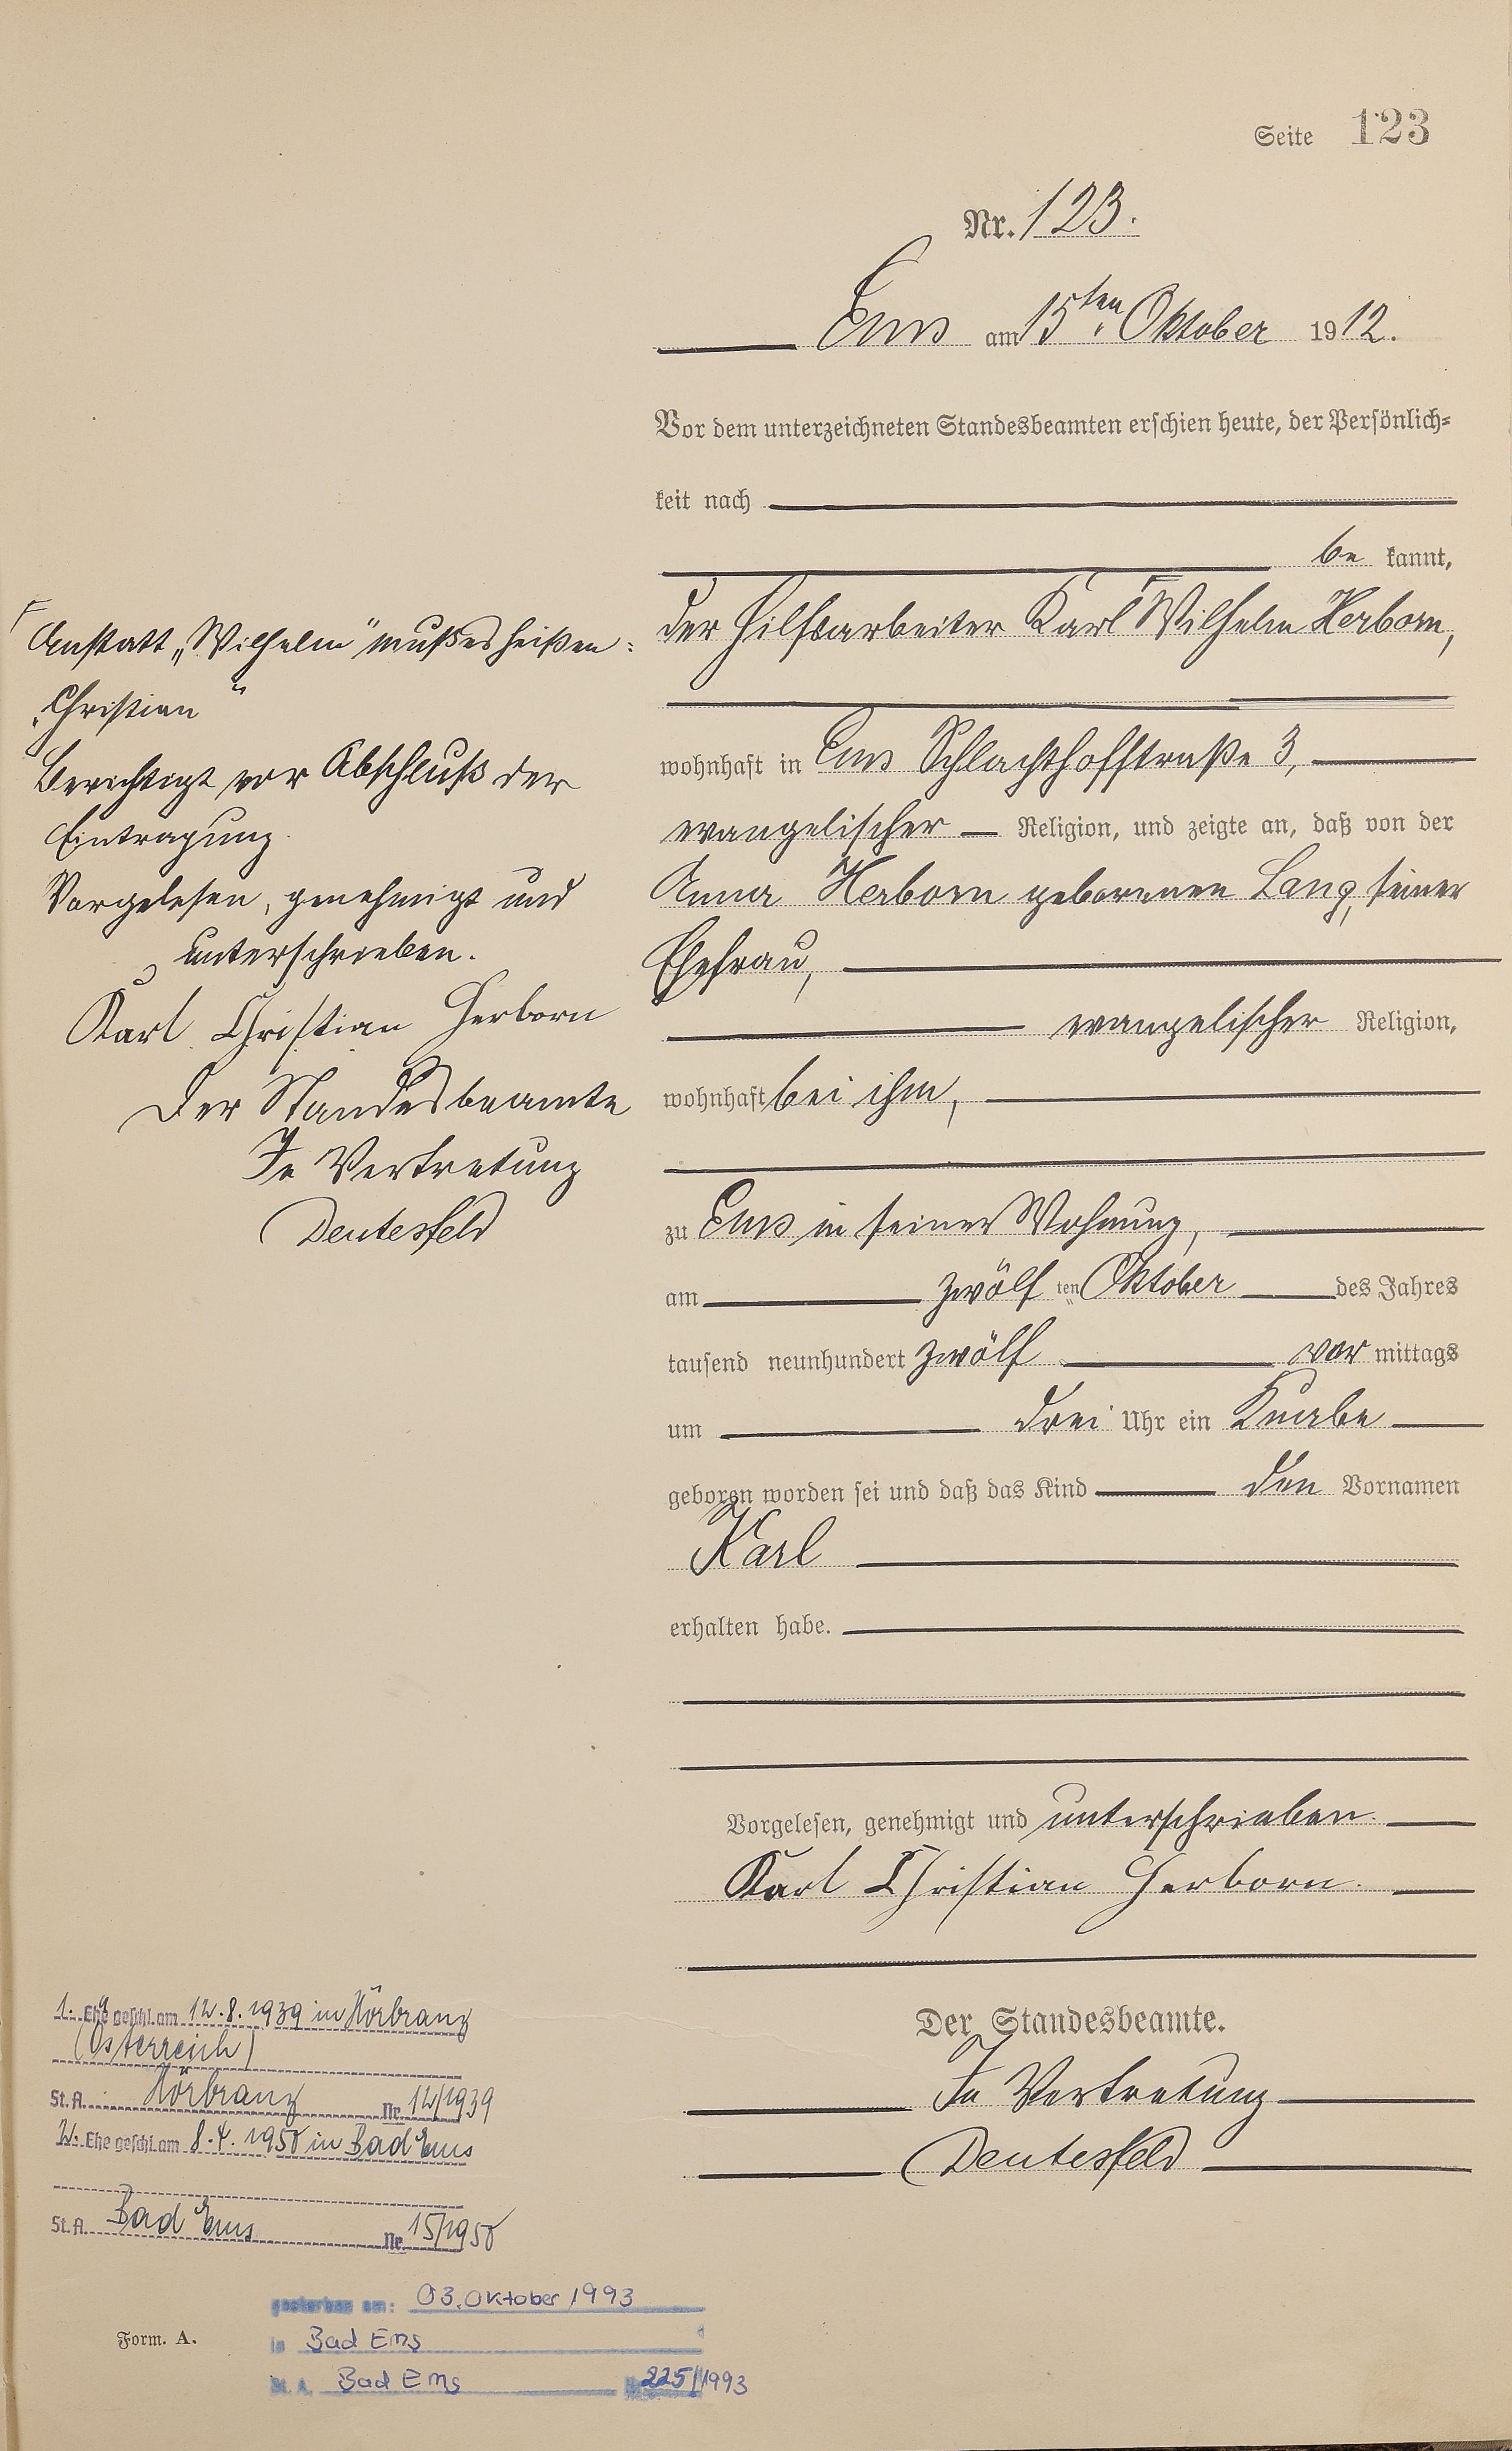 Seite 123
Nr. 123.
Ems am 15ten Oktober 1912.
Vor dem unterzeichneten Standesbeamten erschien heute, der Persönlich-
keit nach
be kannt,
der Hilfsarbeiter Karl Wilhelm Herborn,
wohnhaft in Ems Schlachthofstraße 3,
evangelischer Religion, und zeigte an, daß von der
Anna Herborn geborenen Lang, seiner
Ehefrau,
evangelischer Religion,
wohnhaft bei ihm,
zu Ems in seiner Wohnung,
am zwölf ten Oktober des Jahres
tausend neunhundert zwölf vor mittags
um drei Uhr ein Knabe
geboren worden sei und daß das Kind den Vornamen
Karl
erhalten habe.
Vorgelesen, genehmigt und unterschrieben.
Karl Christian Herborn.
Der Standesbeamte.
In Vertretung
Deutesfeld
Anstatt „Wilhelm" muß es heißen:
„Christian"
Berichtigt vor Abschluß der
Eintragung.
Vorgelesen, genehmigt und
unterschrieben.
Karl Christian Herborn
Der Standesbeamte
In Vertretung
Deutesfeld
1. Ehe geschl. am 12.8.1939 in Hörbranz
(Österreich)
St. A. Hörbranz Nr. 12/1939
2. Ehe geschl. am 8.4.1950 in Bad Ems
St. A. Bad Ems Nr. 15/1950
gestorben am: 03. Oktober 1993
in Bad Ems
St. A. Bad Ems Nr. 225/1993
Form. A.